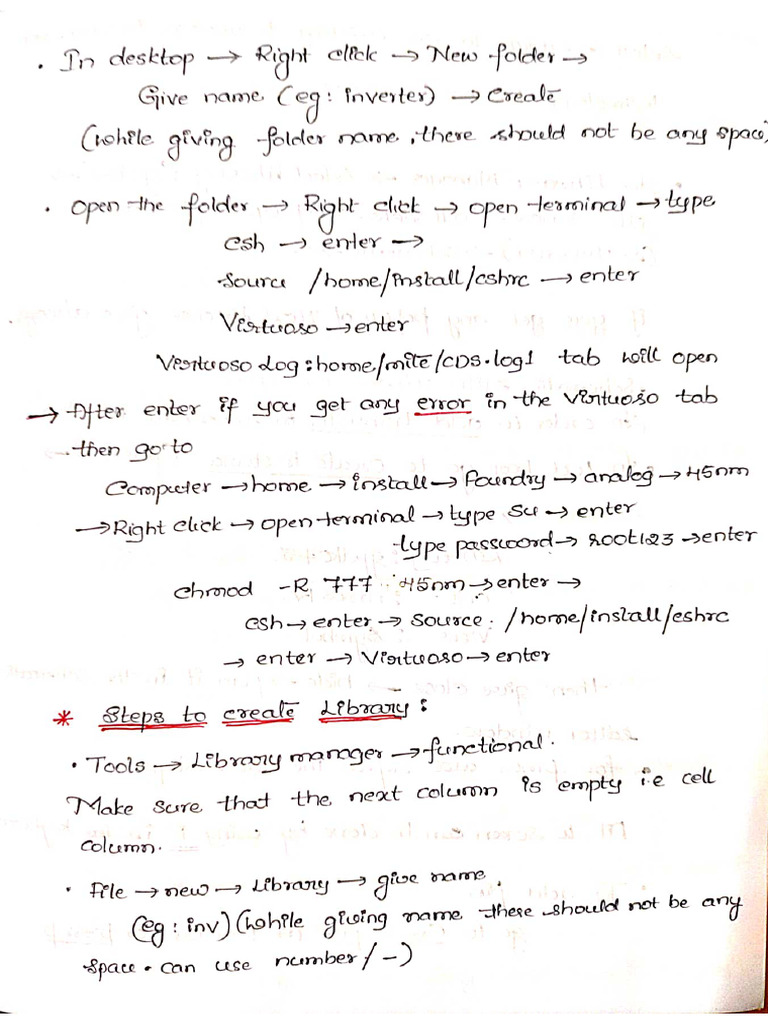 . In desktop → Right click → New folder →
Give name (eg: inverter) → Create
(while giving folder name, there should not be any space)
. Open the folder → Right click → open terminal → type
csh → enter →
source /home/install/cshrc → enter
Virtuoso → enter
Virtuoso Log: home/mite/CDS.log1 tab will open
→ After enter if you get any error in the Virtuoso tab
then go to
Computer → home → install → Foundry → analog → 45nm
→ Right click → open terminal → type su → enter
type password → root123 → enter
chmod -R 777 45nm → enter →
csh → enter → source /home/install/cshrc
→ enter → Virtuoso → enter
* Steps to create Library:
. Tools → Library manager → functional.
Make sure that the next column is empty i.e cell
column.
. File → new → Library → give name.
(eg: inv) (while giving name there should not be any
space. can use number/-)